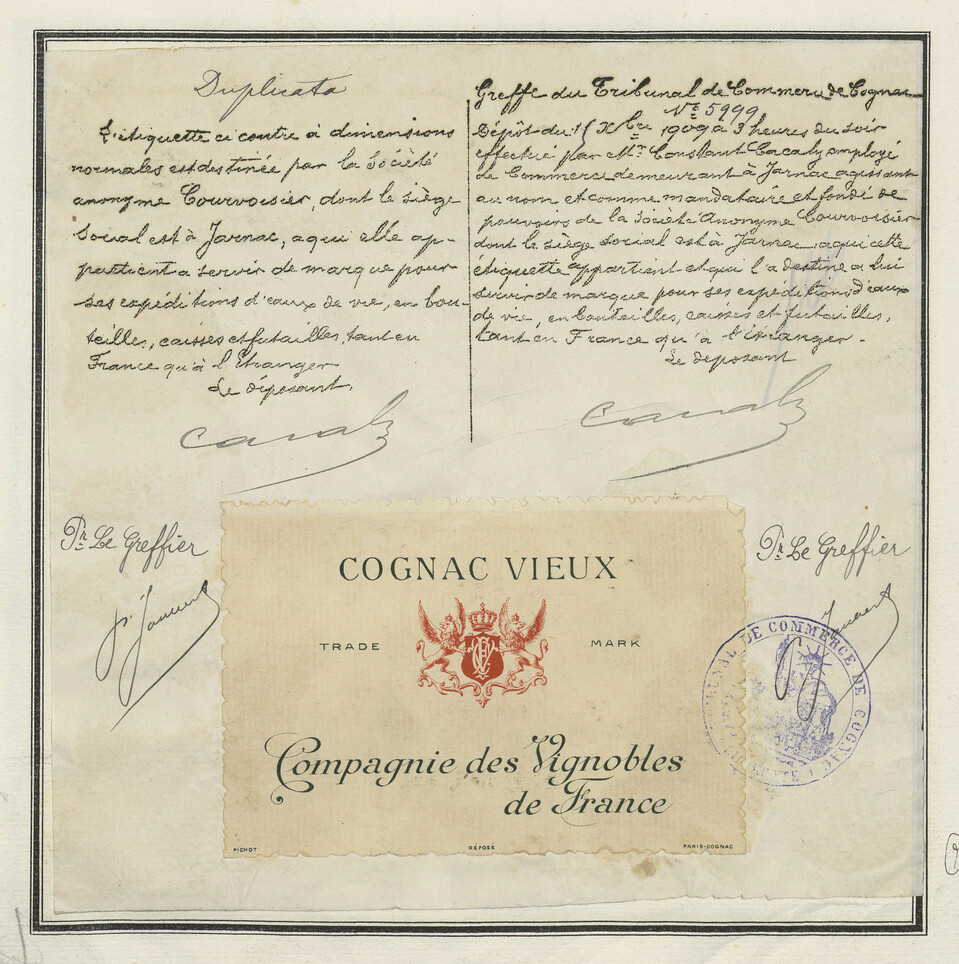 Duplicata
L'étiquette ci contre à dimensions
normales est destinée par la Société
anonyme Courvoisier, dont le siège
Social est à Jarnac, a qui elle ap-
partient a servir de marque pour
ses expéditions d'eaux de vie, en bou-
teilles, caisses et futailles, tant en
France qu'à l'Etranger
Le déposant.
Greffe du Tribunal de Commerce de Cognac
No 5999
Dépôt du Xbre 1909 à 3 heures du soir
effectué par Mr Constant Cacaly employé
de Commerce demeurant à Jarnac agissant
au nom et comme mandataire et fondé de
pouvoirs de la Société Anonyme Courvoisier
dont le siège social est à Jarnac, a qui cette
étiquette appartient et qui l'a destine a lui
servir de marque pour ses expéditions d'eaux
de vie, en bouteilles, caisses et futailles,
tant en France qu'à l'étranger.
Le déposant
Cacaly
Cacaly
Pr. Le Greffier
Pr. Le Greffier
COGNAC VIEUX
TRADE MARK
Compagnie des Vignobles
de France
PICHOT DÉPOSÉ PARIS-COGNAC
TRIBUNAL DE COMMERCE DE COGNAC